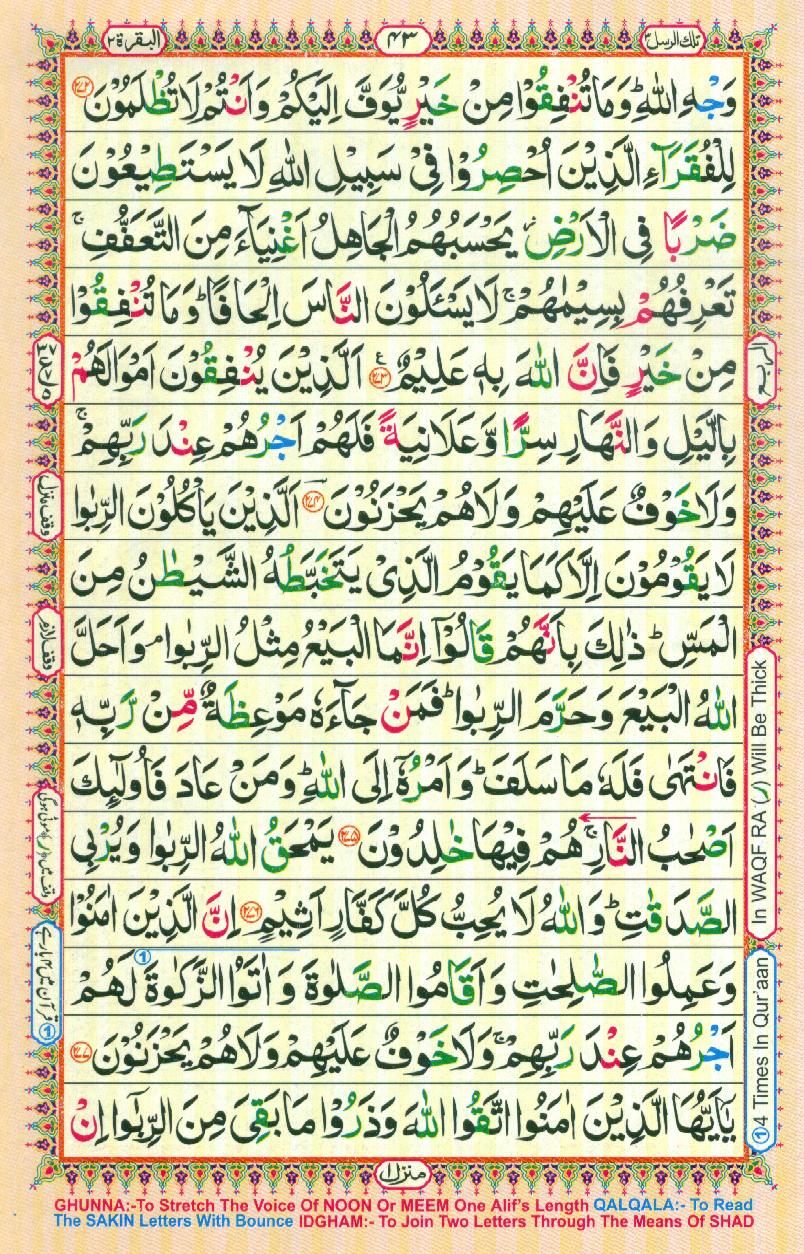 تلك الرسل ٣
٤٣
البقرة ٢
وَجْهِ اللّٰهِ ؕ وَمَا تُنْفِقُوْا مِنْ خَيْرٍ يُّوَفَّ اِلَيْكُمْ وَاَنْتُمْ لَا تُظْلَمُوْنَ ﴿۲۷۲﴾
لِلْفُقَرَآءِ الَّذِيْنَ اُحْصِرُوْا فِيْ سَبِيْلِ اللّٰهِ لَا يَسْتَطِيْعُوْنَ
ضَرْبًا فِى الْاَرْضِ ؗ يَحْسَبُهُمُ الْجَاهِلُ اَغْنِيَآءَ مِنَ التَّعَفُّفِ ۚ
تَعْرِفُهُمْ بِسِيْمٰىهُمْ ۚ لَا يَسْئَلُوْنَ النَّاسَ اِلْحَافًا ؕ وَمَا تُنْفِقُوْا
مِنْ خَيْرٍ فَاِنَّ اللّٰهَ بِهٖ عَلِيْمٌ ﴿۲۷۳﴾ ع اَلَّذِيْنَ يُنْفِقُوْنَ اَمْوَالَهُمْ
بِالَّيْلِ وَالنَّهَارِ سِرًّا وَّعَلَانِيَةً فَلَهُمْ اَجْرُهُمْ عِنْدَ رَبِّهِمْ ۚ
وَلَا خَوْفٌ عَلَيْهِمْ وَلَا هُمْ يَحْزَنُوْنَ ﴿۲۷۴﴾ اَلَّذِيْنَ يَاْكُلُوْنَ الرِّبٰوا
لَا يَقُوْمُوْنَ اِلَّا كَمَا يَقُوْمُ الَّذِىْ يَتَخَبَّطُهُ الشَّيْطٰنُ مِنَ
الْمَسِّ ؕ ذٰلِكَ بِاَنَّهُمْ قَالُوْۤا اِنَّمَا الْبَيْعُ مِثْلُ الرِّبٰوا ۘ وَاَحَلَّ
اللّٰهُ الْبَيْعَ وَحَرَّمَ الرِّبٰوا ؕ فَمَنْ جَآءَهٗ مَوْعِظَةٌ مِّنْ رَّبِّهٖ
فَانْتَهٰى فَلَهٗ مَا سَلَفَ ؕ وَاَمْرُهٗۤ اِلَى اللّٰهِ ؕ وَمَنْ عَادَ فَاُولٰٓئِكَ
اَصْحٰبُ النَّارِ ۚ هُمْ فِيْهَا خٰلِدُوْنَ ﴿۲۷۵﴾ يَمْحَقُ اللّٰهُ الرِّبٰوا وَيُرْبِى
الصَّدَقٰتِ ؕ وَاللّٰهُ لَا يُحِبُّ كُلَّ كَفَّارٍ اَثِيْمٍ ﴿۲۷۶﴾ اِنَّ الَّذِيْنَ اٰمَنُوْا
وَعَمِلُوا الصّٰلِحٰتِ وَاَقَامُوا الصَّلٰوةَ وَاٰتَوُا الزَّكٰوةَ لَهُمْ
اَجْرُهُمْ عِنْدَ رَبِّهِمْ ۚ وَلَا خَوْفٌ عَلَيْهِمْ وَلَا هُمْ يَحْزَنُوْنَ ﴿۲۷۷﴾
يٰۤاَيُّهَا الَّذِيْنَ اٰمَنُوا اتَّقُوا اللّٰهَ وَذَرُوْا مَا بَقِىَ مِنَ الرِّبٰۤوا اِنْ
منزل ١
الربع
وقف منزل
وقف لازم
In WAQF RA (ر) Will Be Thick
① 4 Times In Qur'aan
GHUNNA:-To Stretch The Voice Of NOON Or MEEM One Alif's Length QALQALA:- To Read
The SAKIN Letters With Bounce IDGHAM:- To Join Two Letters Through The Means Of SHAD